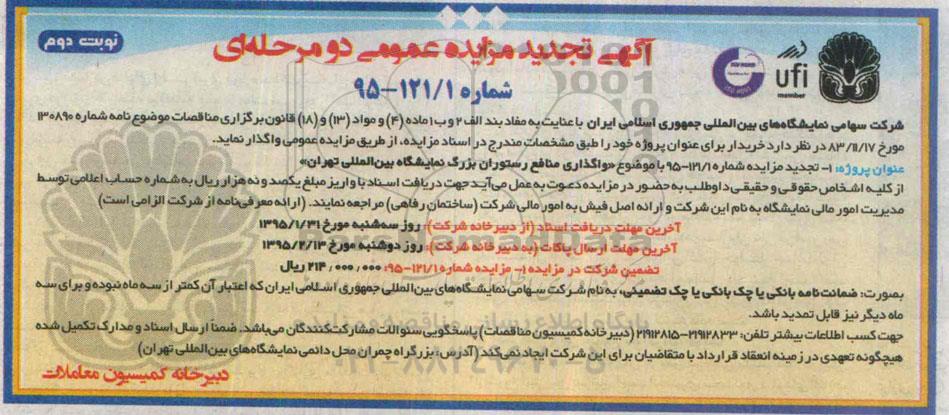 نوبت دوم
آگهی تجدید مزایده عمومی دو مرحله‌ای
شماره ۱۲۱/۱-۹۵
ufi
member
شرکت سهامی نمایشگاه‌های بین‌المللی جمهوری اسلامی ایران با عنایت به مفاد بند الف ۲ و ب ۱ ماده (۴) و مواد (۱۳) و (۱۸) قانون برگزاری مناقصات موضوع نامه شماره ۱۳۰۸۹۰
مورخ ۸۳/۱۱/۱۷ در نظر دارد خریدار برای عنوان پروژه خود را طبق مشخصات مندرج در اسناد مزایده، از طریق مزایده عمومی واگذار نماید.
عنوان پروژه: ۱- تجدید مزایده شماره ۱۲۱/۱-۹۵ با موضوع «واگذاری منافع رستوران بزرگ نمایشگاه بین‌المللی تهران»
از کلیه اشخاص حقوقی و حقیقی داوطلب به حضور در مزایده دعوت به عمل می‌آید جهت دریافت اسناد با واریز مبلغ یکصد و نه هزار ریال به شماره حساب اعلامی توسط
مدیریت امور مالی نمایشگاه به نام این شرکت و ارائه اصل فیش به امور مالی شرکت (ساختمان رفاهی) مراجعه نمایند. (ارائه معرفی‌نامه از شرکت الزامی است)
آخرین مهلت دریافت اسناد (از دبیرخانه شرکت): روز سه‌شنبه مورخ ۱۳۹۵/۱/۳۱
آخرین مهلت ارسال پاکات (به دبیرخانه شرکت): روز دوشنبه مورخ ۱۳۹۵/۲/۱۳
تضمین شرکت در مزایده ۱- مزایده شماره ۱۲۱/۱-۹۵: ۲۱۴,۰۰۰,۰۰۰ ریال
بصورت: ضمانت‌نامه بانکی یا چک بانکی یا چک تضمینی، به نام شرکت سهامی نمایشگاه‌های بین‌المللی جمهوری اسلامی ایران که اعتبار آن کمتر از سه ماه نبوده و برای سه
ماه دیگر نیز قابل تمدید باشد.
جهت کسب اطلاعات بیشتر تلفن: ۲۱۹۱۲۸۳۳-۲۱۹۱۲۸۱۵ (دبیرخانه کمیسیون مناقصات) پاسخگویی سئوالات مشارکت‌کنندگان می‌باشد. ضمناً ارسال اسناد و مدارک تکمیل شده
هیچگونه تعهدی در زمینه انعقاد قرارداد با متقاضیان برای این شرکت ایجاد نمی‌کند (آدرس: بزرگراه چمران محل دائمی نمایشگاه‌های بین‌المللی تهران)
دبیرخانه کمیسیون معاملات